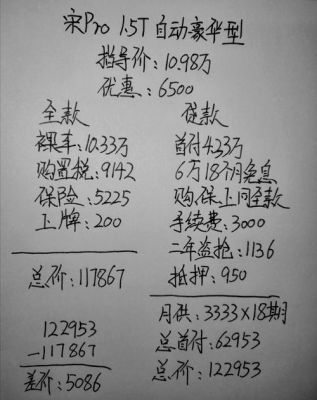 宋Pro 1.5T 自动豪华型
指导价：10.98万
优惠：6500
全款
裸车：10.33万
购置税：9142
保险：5225
上牌：200
总价：117867
122953
-117867
差价：5086
贷款
首付4.23万
6万18个月免息
购、保、上同全款
手续费：3000
二年盗抢：1136
抵押：950
月供：3333×18期
总首付：62953
总价：122953